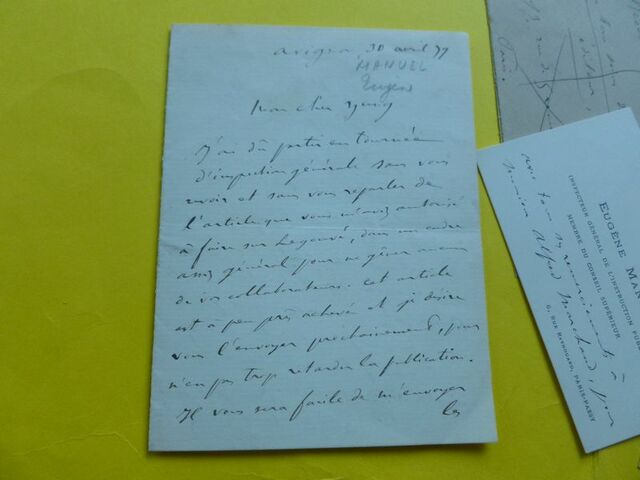 Avignon 30 avril 77
MANUEL
Eugène
Mon cher Yung
J'ai dû partir en tournée
d'inspection générale sans vous
revoir et sans vous reparler de
l'article que vous m'avez autorisé
à faire sur Legouvé, dans un cadre
assez général pour ne gêner aucun
de vos collaborateurs. Cet article
est à peu près achevé et je désire
vous l'envoyer prochainement, pour
n'en pas trop retarder la publication.
Il vous sera facile de m'envoyer
les
EUGÈNE MAN
INSPECTEUR GÉNÉRAL DE L'INSTRUCTION PUBL
MEMBRE DU CONSEIL SUPÉRIEUR
6, RUE RAYNOUARD, PARIS-PASSY
avec tous mes remerciements à
Monsieur Alfred Marchand, pour